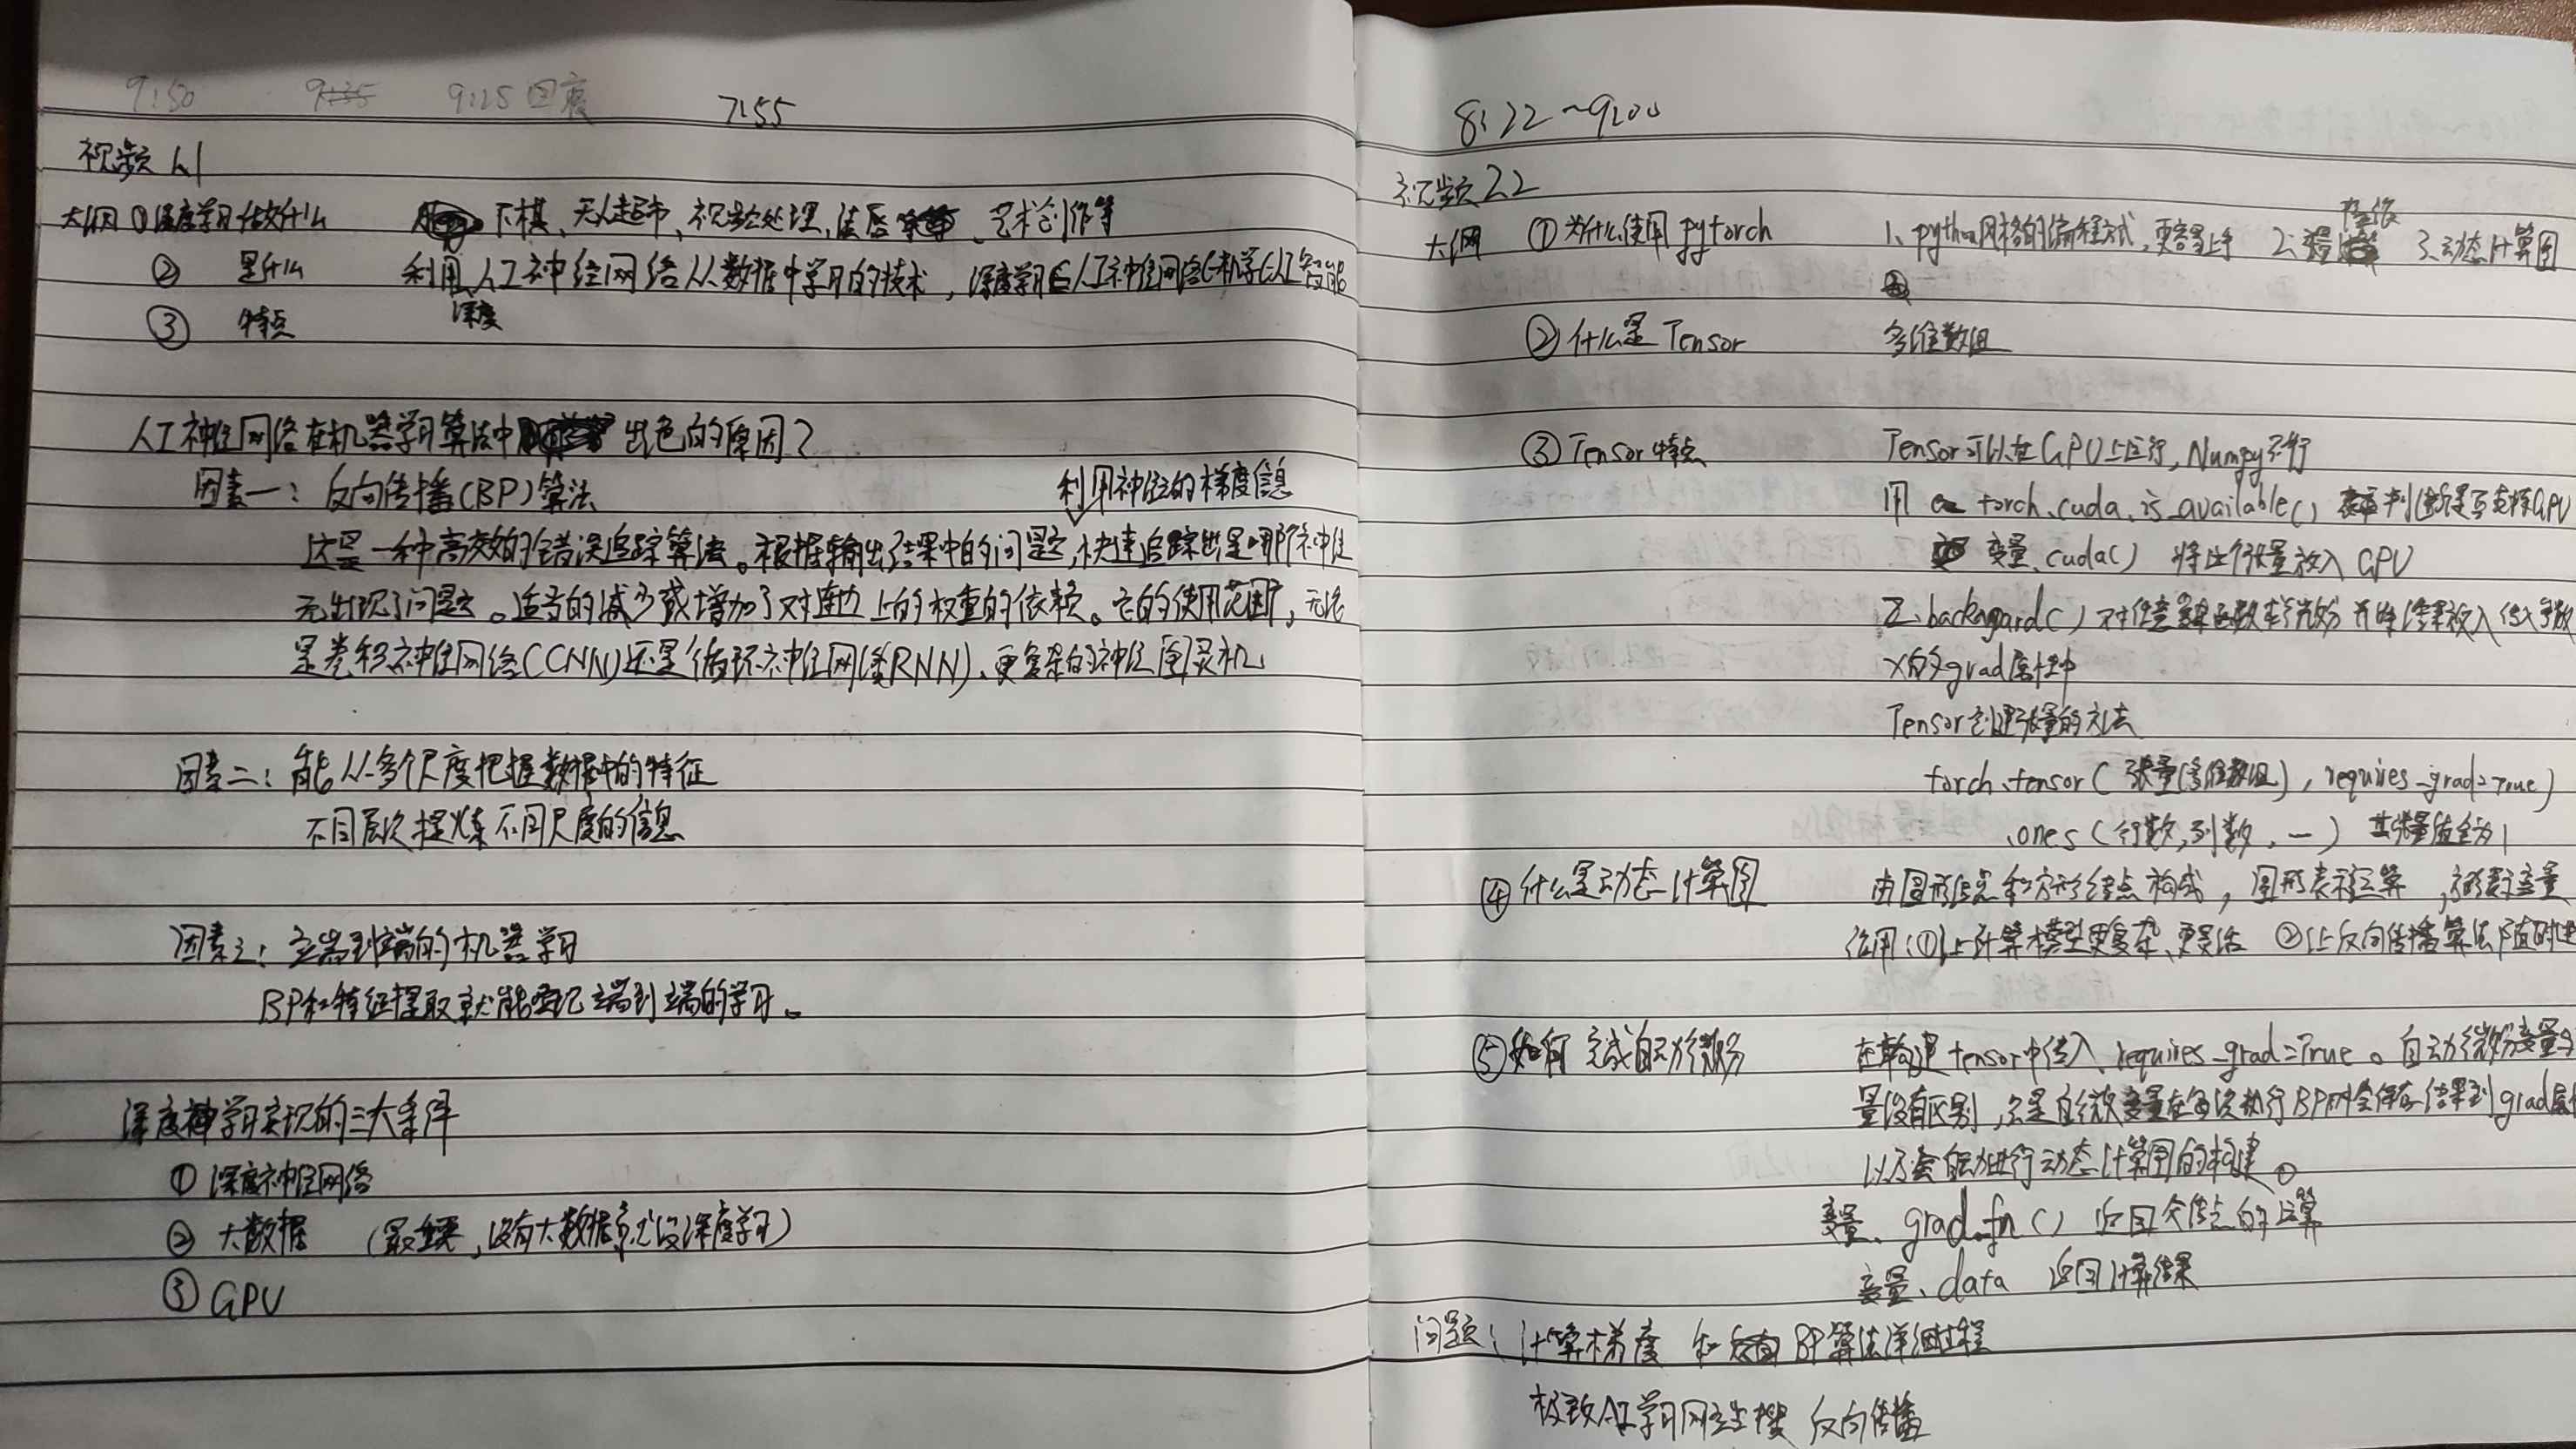 9:50 9:35 9:25 回寝 7:55
视频 1.1
大纲 ①深度学习做什么 下棋、无人超市、视频处理、语音、艺术创作等
② 是什么 利用人工神经网络从数据中学习的技术，深度学习∈人工神经网络∈机学∈人工智能
深度
③ 特点
人工神经网络在机器学习算法中出色的原因？
因素一：反向传播(BP)算法 利用神经的梯度信息
这是一种高效的错误追踪算法。根据输出结果中的问题，快速追踪出是哪个神经
元出现了问题。适当的减少或增加了对连边上的权重的依赖。它的使用范围广，无论
是卷积神经网络(CCNN)还是循环神经网络(RNN)、更复杂的神经图灵机
因素二：能从多个尺度把握数据中的特征
不同层次提炼不同尺度的信息
因素三：端到端的机器学习
BP和特征提取就能实现端到端的学习。
深度学习实现的三大条件
① 深度神经网络
② 大数据 (最重要，没有大数据就没深度学习)
③ GPU
8:22~9:00
视频2.2
大纲 ①为什么使用pytorch 1、python风格的编程方式，更容易上手 2、 3、动态计算图
②什么是Tensor 多维数组
③Tensor特点 Tensor可以在GPU上运行，Numpy不行
用 torch.cuda.is_available() 来判断是否支持GPU
变量.cuda() 将这个张量放入GPU
Z.backagard() 对任意函数求微分 并将结果放入传入参数
X的grad属性中
Tensor创建张量的方法
torch.tensor(张量(多维数组)，requires_grad=True)
.ones(行数,列数,—) 其张量值全为1
④什么是动态计算图 由圆形结点和方形结点构成，圆形表示运算，方形表示变量
作用：①让计算模型更复杂、更灵活 ②让反向传播算法随时进
⑤如何完成自动微分 在构建tensor中传入requires_grad=True。自动微分变量与
量没有区别，只是自微变量在每次执行BP时会保存结果到grad属
以及会自动进行动态计算图的构建。
变量.grad_fn() 返回个结点的运算
变量.data 返回计算结果
问题：计算梯度 和 BP算法详细过程
极致AI学习网 反向传播